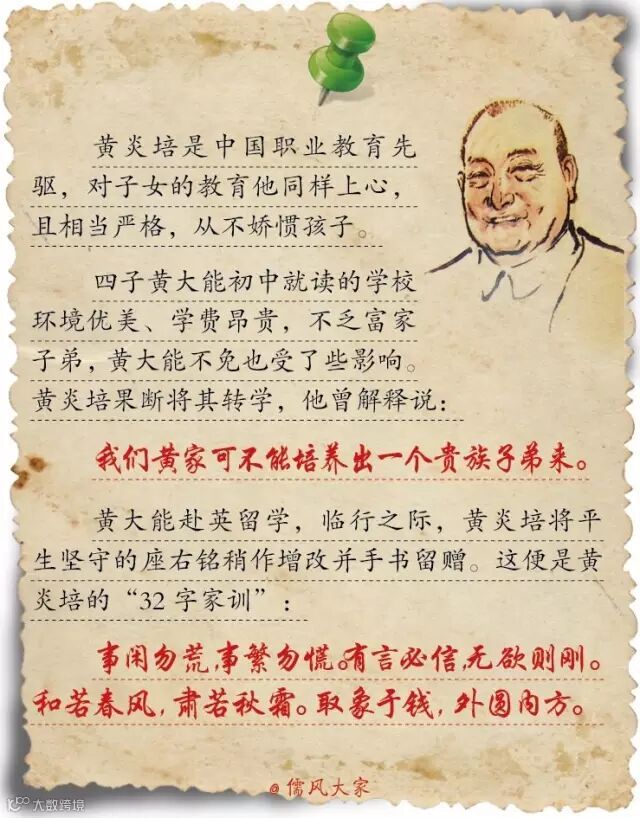 黄炎培是中国职业教育先
驱，对子女的教育他同样上心，
且相当严格，从不娇惯孩子。
四子黄大能初中就读的学校
环境优美、学费昂贵，不乏富家
子弟，黄大能不免也受了些影响。
黄炎培果断将其转学，他曾解释说：
我们黄家可不能培养出一个贵族子弟来。
黄大能赴英留学，临行之际，黄炎培将平
生坚守的座右铭稍作增改并手书留赠。这便是黄
炎培的“32字家训”：
事闲勿荒，事繁勿慌。有言必信，无欲则刚。
和若春风，肃若秋霜。取象于钱，外圆内方。
@儒风大家
大数跨境